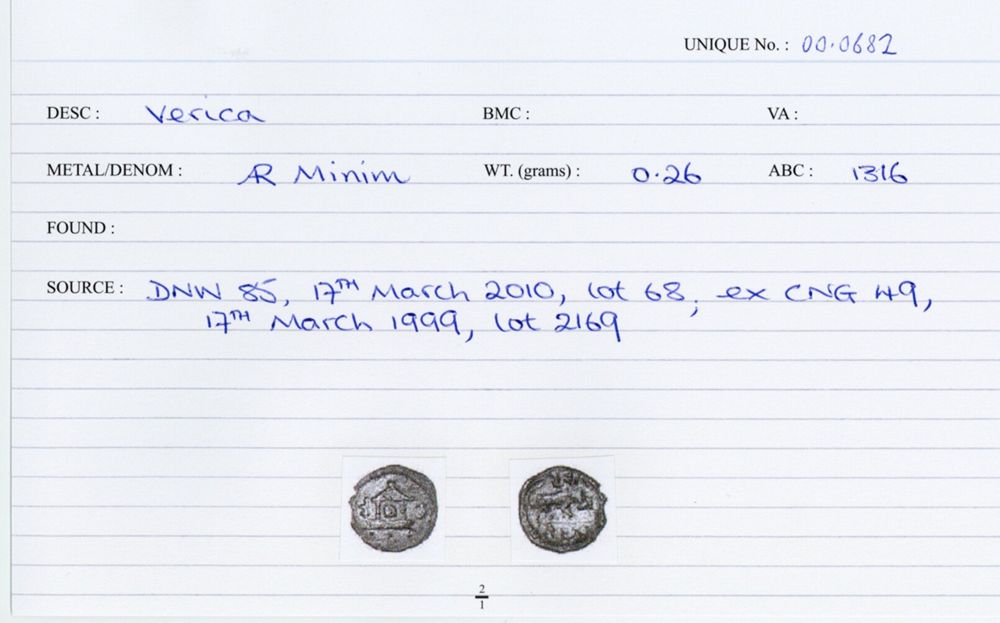 UNIQUE No. : 00.0682
DESC : Verica BMC : VA :
METAL/DENOM : AR Minim WT. (grams) : 0.26 ABC : 1316
FOUND :
SOURCE : DNW 85, 17TH March 2010, lot 68, ex CNG 49,
17TH March 1999, lot 2169
2
1